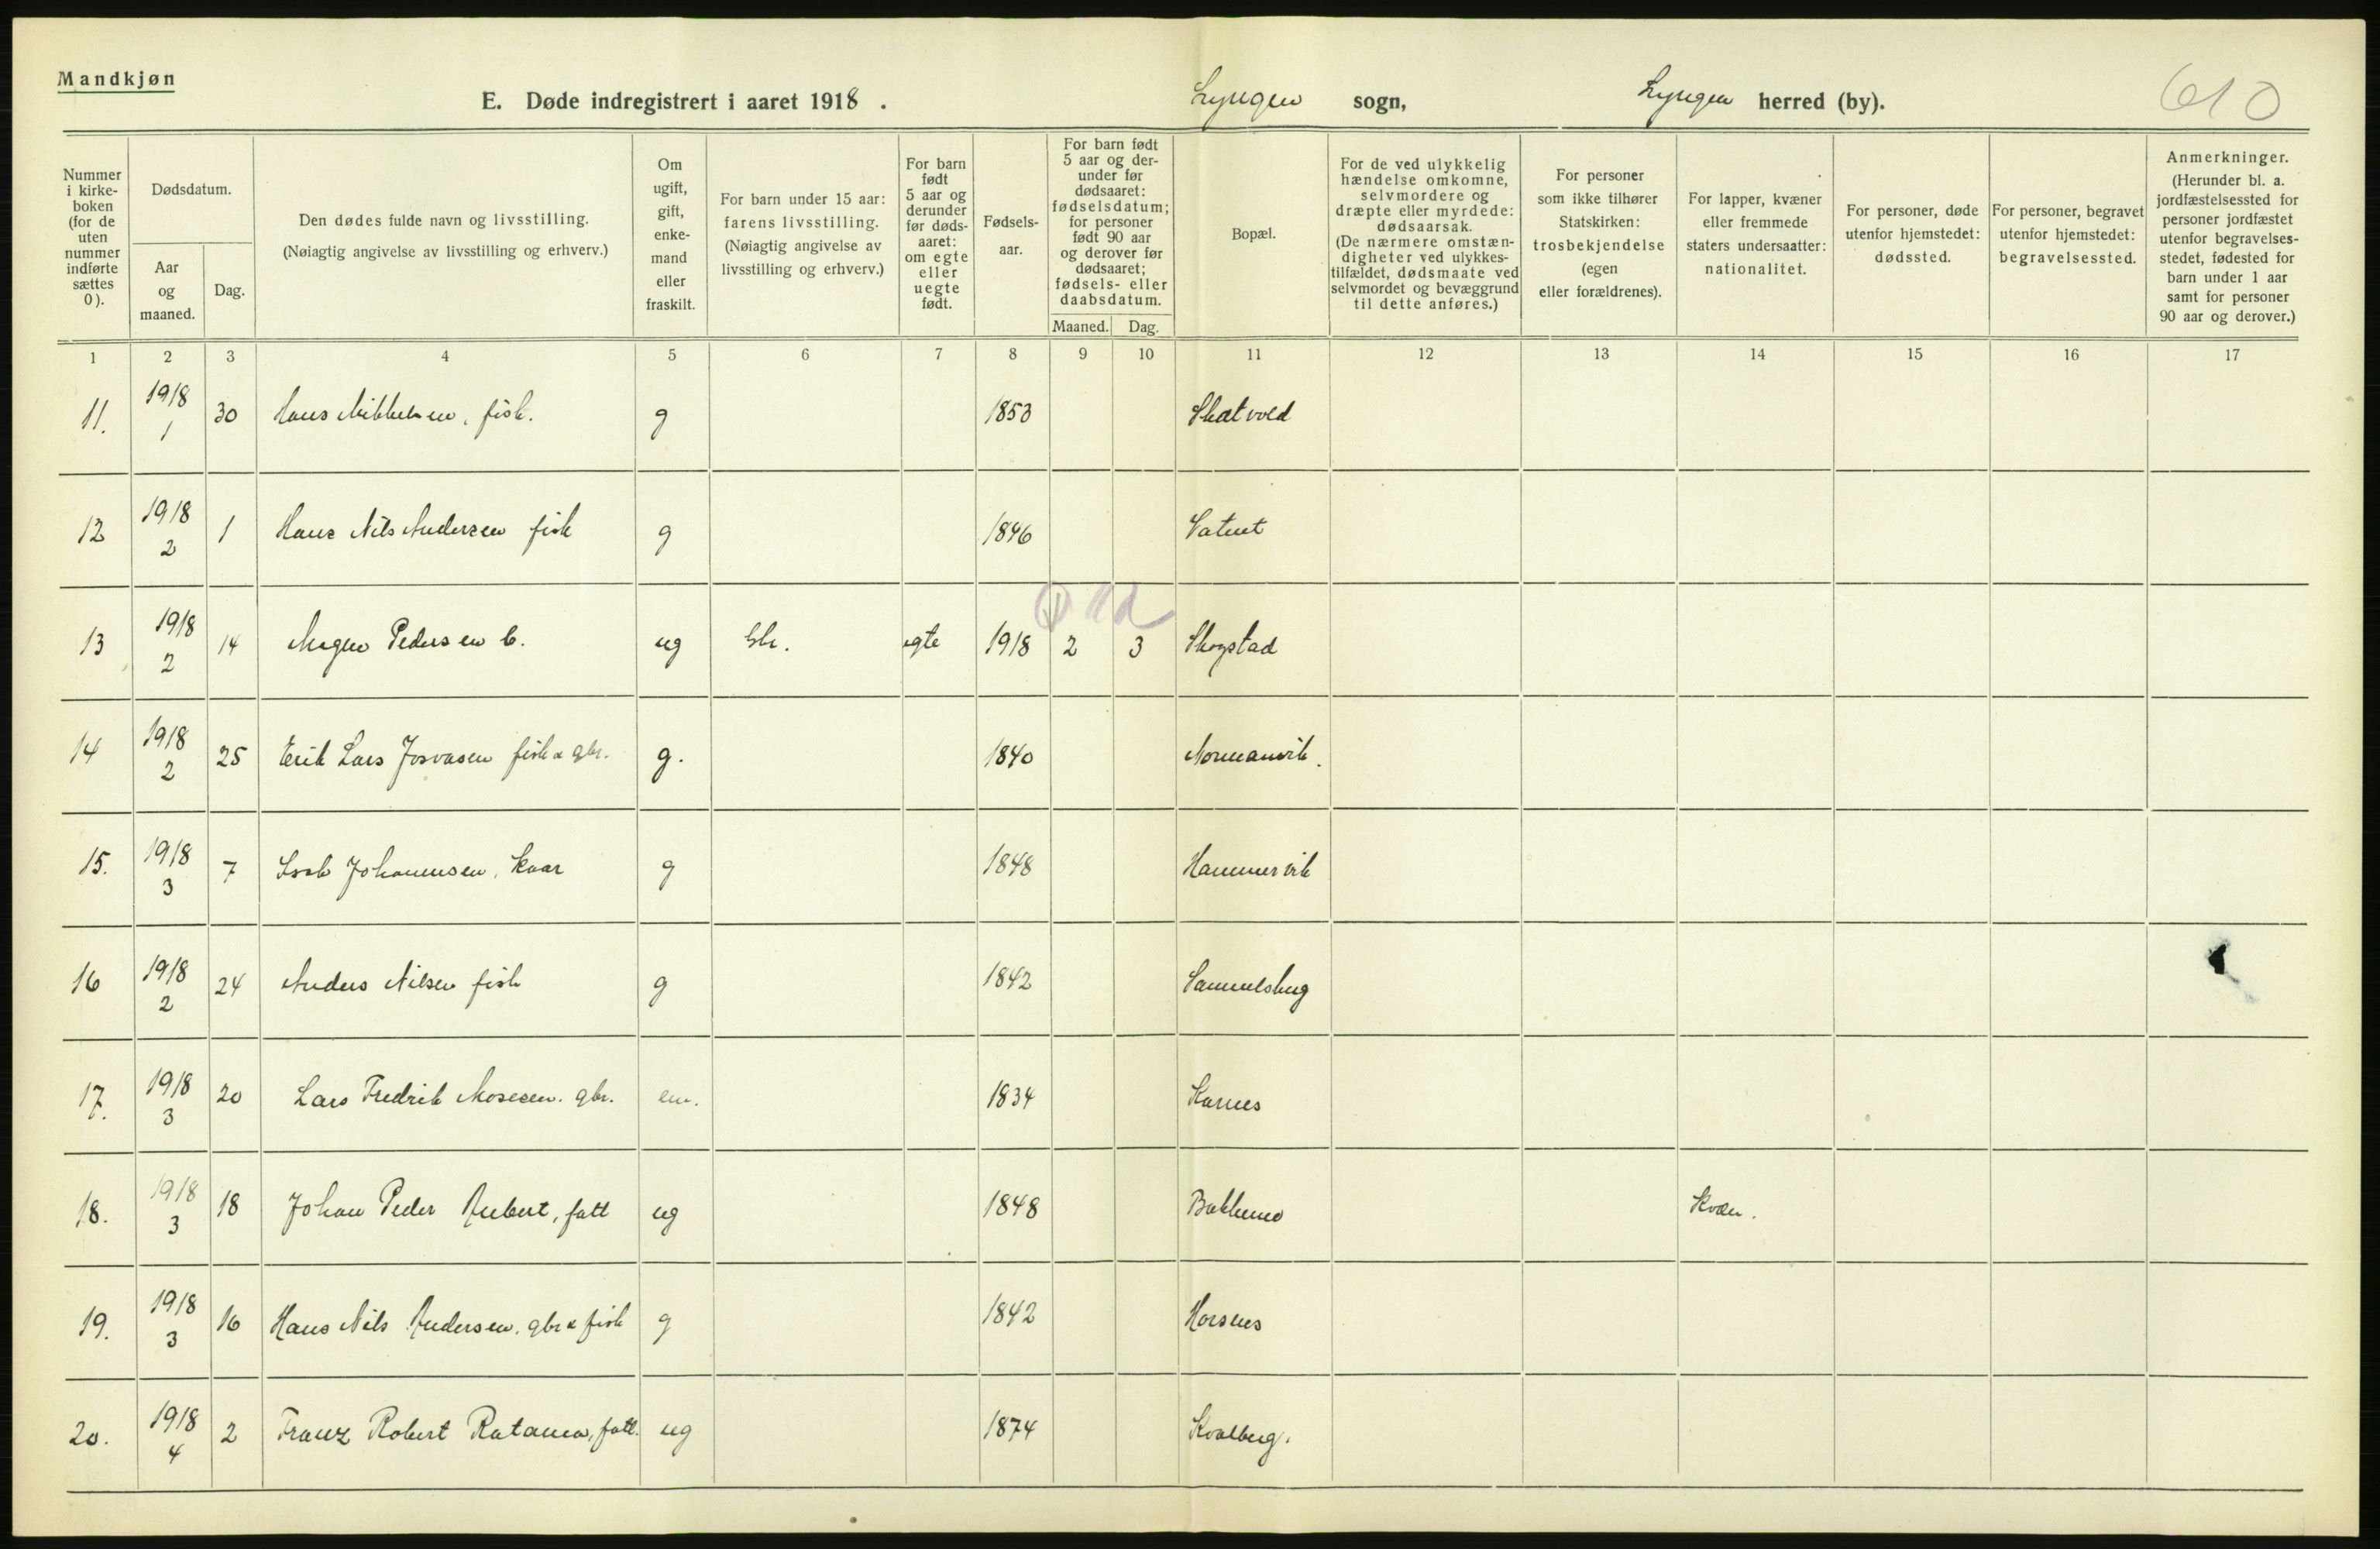 Mandkjøn
E. Døde indregistrert i aaret 1918 . Lyngen sogn, Lyngen herred (by). 610
Nummer i kirke-boken (for de uten nummer indførte sættes 0).
Dødsdatum.
Aar og maaned.
Dag.
Den dødes fulde navn og livsstilling.
(Nøiagtig angivelse av livsstilling og erhverv.)
Om ugift, gift, enke-mand eller fraskilt.
For barn under 15 aar: farens livsstilling. (Nøiagtig angivelse av livsstilling og erhverv.)
For barn født 5 aar og derunder før døds-aaret: om egte eller uegte født.
Fødsels-aar.
For barn født 5 aar og der-under før dødsaaret: fødselsdatum; for personer født 90 aar og derover før dødsaaret; fødsels- eller daabsdatum.
Maaned. Dag.
Bopæl.
For de ved ulykkelig hændelse omkomne, selvmordere og dræpte eller myrdede: dødsaarsak. (De nærmere omstæn-digheter ved ulykkes-tilfældet, dødsmaate ved selvmordet og bevæggrund til dette anføres.)
For personer som ikke tilhører Statskirken: trosbekjendelse (egen eller forældrenes).
For lapper, kvæner eller fremmede staters undersaatter: nationalitet.
For personer, døde utenfor hjemstedet: dødssted.
For personer, begravet utenfor hjemstedet: begravelsessted.
Anmerkninger. (Herunder bl. a. jordfæstelsessted for personer jordfæstet utenfor begravelses-stedet, fødested for barn under 1 aar samt for personer 90 aar og derover.)
1 2 3 4 5 6 7 8 9 10 11 12 13 14 15 16 17
11. 1918 1 30 Hans Mikkelsen, fisk. g 1853 Skatvold
12 1918 2 1 Hans Nils Andersen fisk g 1846 Vatnet
13 1918 2 14 Magne Pedersen b. ug egte 1918 2 3 Skogstad
14 1918 2 25 Erik Lars Josvasen fisk & gbr. g. 1840 Normanvik.
15. 1918 3 7 Isak Johannesen, kaar g 1848 Hammervik
16 1918 2 24 Anders Nilsen fisk g 1842 Samuelsbug
17. 1918 3 20 Lars Fredrik Mosesen. gbr. em. 1834 Karnes
18. 1918 3 18 Johan Peder Aubert, fatt ug 1848 Kvæn.
19. 1918 3 16 Hans Nils Andersen. gbr & fisk g 1842 Horsnes
20. 1918 4 2 Franz Robert Ratama, fatt. ug 1874 Kvalberg.